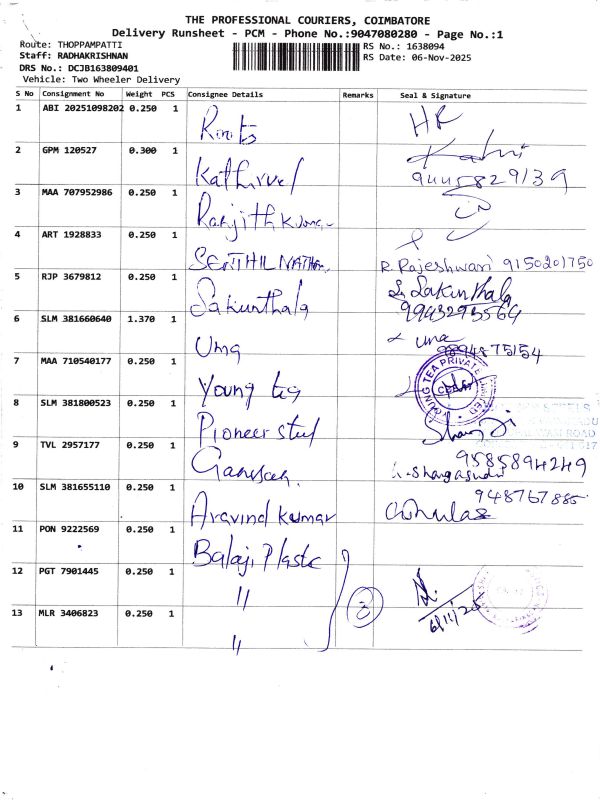 THE PROFESSIONAL COURIERS, COIMBATORE
Delivery Runsheet - PCM - Phone No.:9047080280 - Page No.:1
Route: THOPPAMPATTI
Staff: RADHAKRISHNAN
DRS No.: DCJB163809401
Vehicle: Two Wheeler Delivery
RS No.: 1638094
RS Date: 06-Nov-2025
S No Consignment No Weight PCS Consignee Details Remarks Seal & Signature
1 ABI 20251098202 0.250 1 Roots HR
2 GPM 120527 0.300 1 Kathirvel
3 MAA 707952986 0.250 1 Ranjith Kumar
4 ART 1928833 0.250 1 SENTHIL NATHAN R. Rajeshwari 9150201750
5 RJP 3679812 0.250 1 Sakunthala S. Sakunthala
9943293564
6 SLM 381660640 1.370 1 Uma uma
9894875154
7 MAA 710540177 0.250 1 Young tea YOUNG TEA PRIVATE LIMITED
8 SLM 381800523 0.250 1 Pioneer steel
9 TVL 2957177 0.250 1 Ganesh 9585894249
10 SLM 381655110 0.250 1 Aravind Kumar
11 PON 9222569 0.250 1 Balaji Plastc
12 PGT 7901445 0.250 1 "
6/11/25
13 MLR 3406823 0.250 1 "